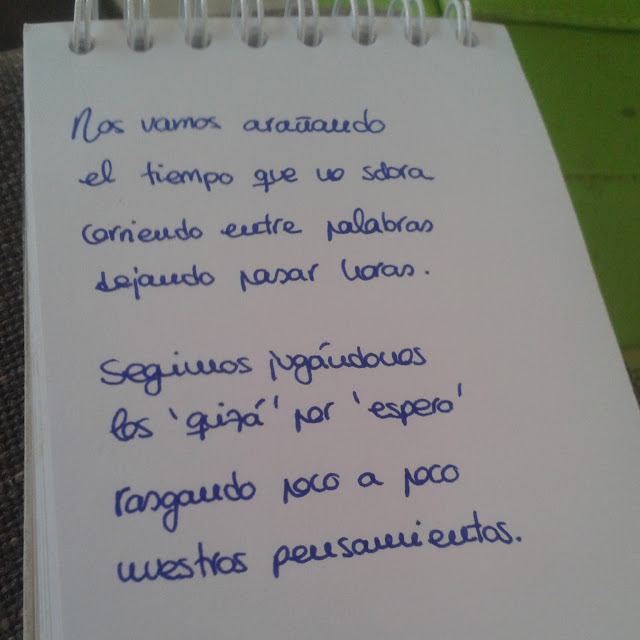 Nos vamos arañando
el tiempo que no sobra
corriendo entre palabras
dejando pasar horas.
Seguimos jugándonos
los 'quizá' por 'espero'
rasgando poco a poco
nuestros pensamientos.